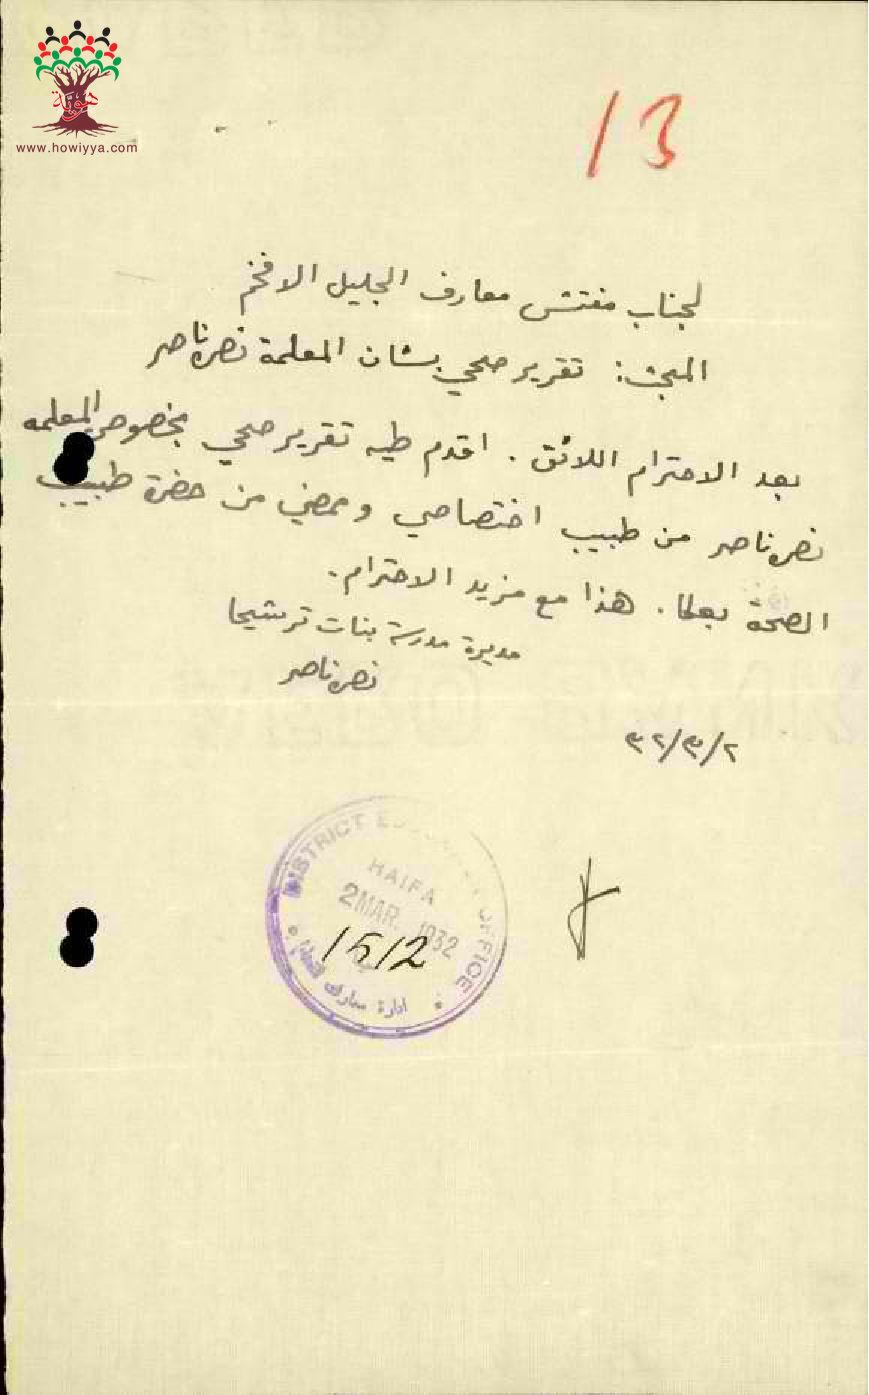 هوية
www.howiyya.com
13
لجناب مفتش معارف الجليل الافخم
المبحث: تقرير صحي بشان المعلمة نصره ناصر
بعد الاحترام اللائق. اقدم طيه تقرير صحي بخصوص المعلمه
نصره ناصر من طبيب اختصاصي وممضي من حضرة طبيب
الصحة بعكا. هذا مع مزيد الاحترام.
مديرة مدرسة بنات ترشيحا
نصره ناصر
٣٢/٣/٢
DISTRICT OFFICE
HAIFA
2 MAR. 1932
1512
ادارة معارف